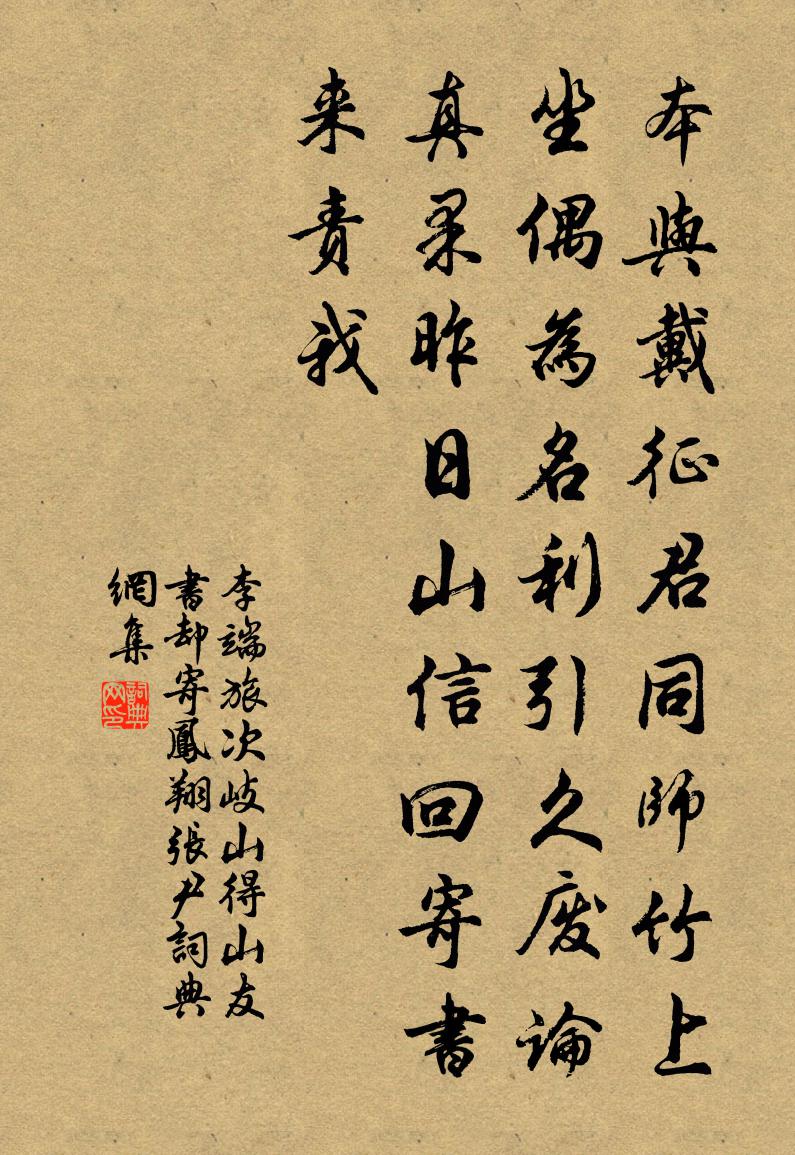 本與戴征君同師竹上
坐偶為名利引久廢論
真果昨日山信回寄書
来責我
李端旅次岐山得山友
書却寄鳳翔張尹詞典
網集
詞典
网印